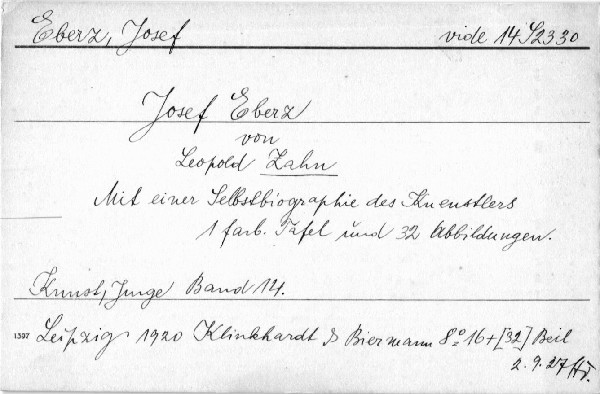 Eberz, Josef vide 14 S2330
Josef Eberz
von
Leopold Zahn
Mit einer Selbstbiographie des Kuenstlers
1 farb. Tafel und 32 Abbildungen.
Kunst, Junge Band 14.
1397 Leipzig 1920 Klinkhardt & Biermann 8° 16+[32] Beil
2.9.27